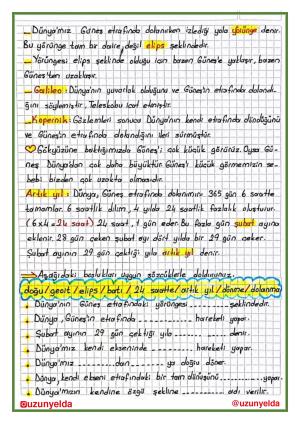 _ Dünya'mız Güneş etrafında dolanırken izlediği yola yörünge denir.
Bu yörünge tam bir daire değil elips şeklindedir.
_ Yörüngesi elips şeklinde olduğu için bazen Güneş'e yaklaşır, bazen
Güneş'ten uzaklaşır.
_ Galileo: Dünya'nın yuvarlak olduğunu ve Güneş'in etrafında dolandı-
ğını söylemiştir. Teleskobu icat etmiştir.
_ Kopernik: Gözlemleri sonucu Dünya'nın kendi etrafında döndüğünü
ve Güneş'in etrafında dolandığını ileri sürmüştür.
Gökyüzüne baktığımızda Güneş'i çok küçük görürüz. Oysa Gü-
neş Dünya'dan çok daha büyüktür. Güneş'i küçük görmemizin se-
bebi bizden çok uzakta olmasıdır.
Artık yıl: Dünya, Güneş etrafında dolanımını 365 gün 6 saatte
tamamlar. 6 saatlik dilim, 4 yılda 24 saatlik fazlalık oluşturur.
(6x4=24 saat) 24 saat, 1 gün eder. Bu fazla gün şubat ayına
eklenir. 28 gün çeken şubat ayı dört yılda bir 29 gün çeker.
Şubat ayının 29 gün çektiği yıla artık yıl denir.
_ Aşağıdaki boşlukları uygun sözcüklerle dolduralım.
doğu/geoit/elips/batı/24 saatte/artık yıl/dönme/dolanma
Dünya'nın Güneş etrafındaki yörüngesi ........ şeklindedir.
Dünya, Güneş'in etrafında ........ hareketi yapar.
Şubat ayının 29 gün çektiği yıla ........ denir.
Dünya'mız kendi ekseninde ........ hareketi yapar.
Dünya'mız ........dan ........ya doğru döner.
Dünya, kendi ekseni etrafındaki bir tam dönüşünü ........ yapar.
Dünya'mızın kendine özgü şekline ........ adı verilir.
@uzunyelda
@uzunyelda